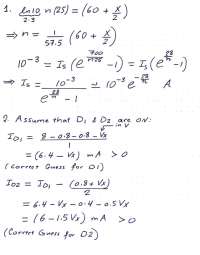 1. ln10/2.3 n(25) = (60 + x/2)
⇒ n = 1/57.5 (60 + x/2)
10⁻³ = Is (e^(700/n25) -1) = Is (e^(28/n) -1)
⇒ Is = 10⁻³/(e^(28/n) - 1) ≃ 10⁻³ e^(-28/n) A
2. Assume that D1 & D2 are ON:
in V
ID1 = (8 - 0.8 - 0.8 - Vx)/1
= (6.4 - Vx) mA > 0
(Correct Guess for D1)
ID2 = ID1 - (0.8 + Vx)/2
= 6.4 - Vx - 0.4 - 0.5Vx
= (6 - 1.5Vx) mA > 0
(Correct Guess for D2)